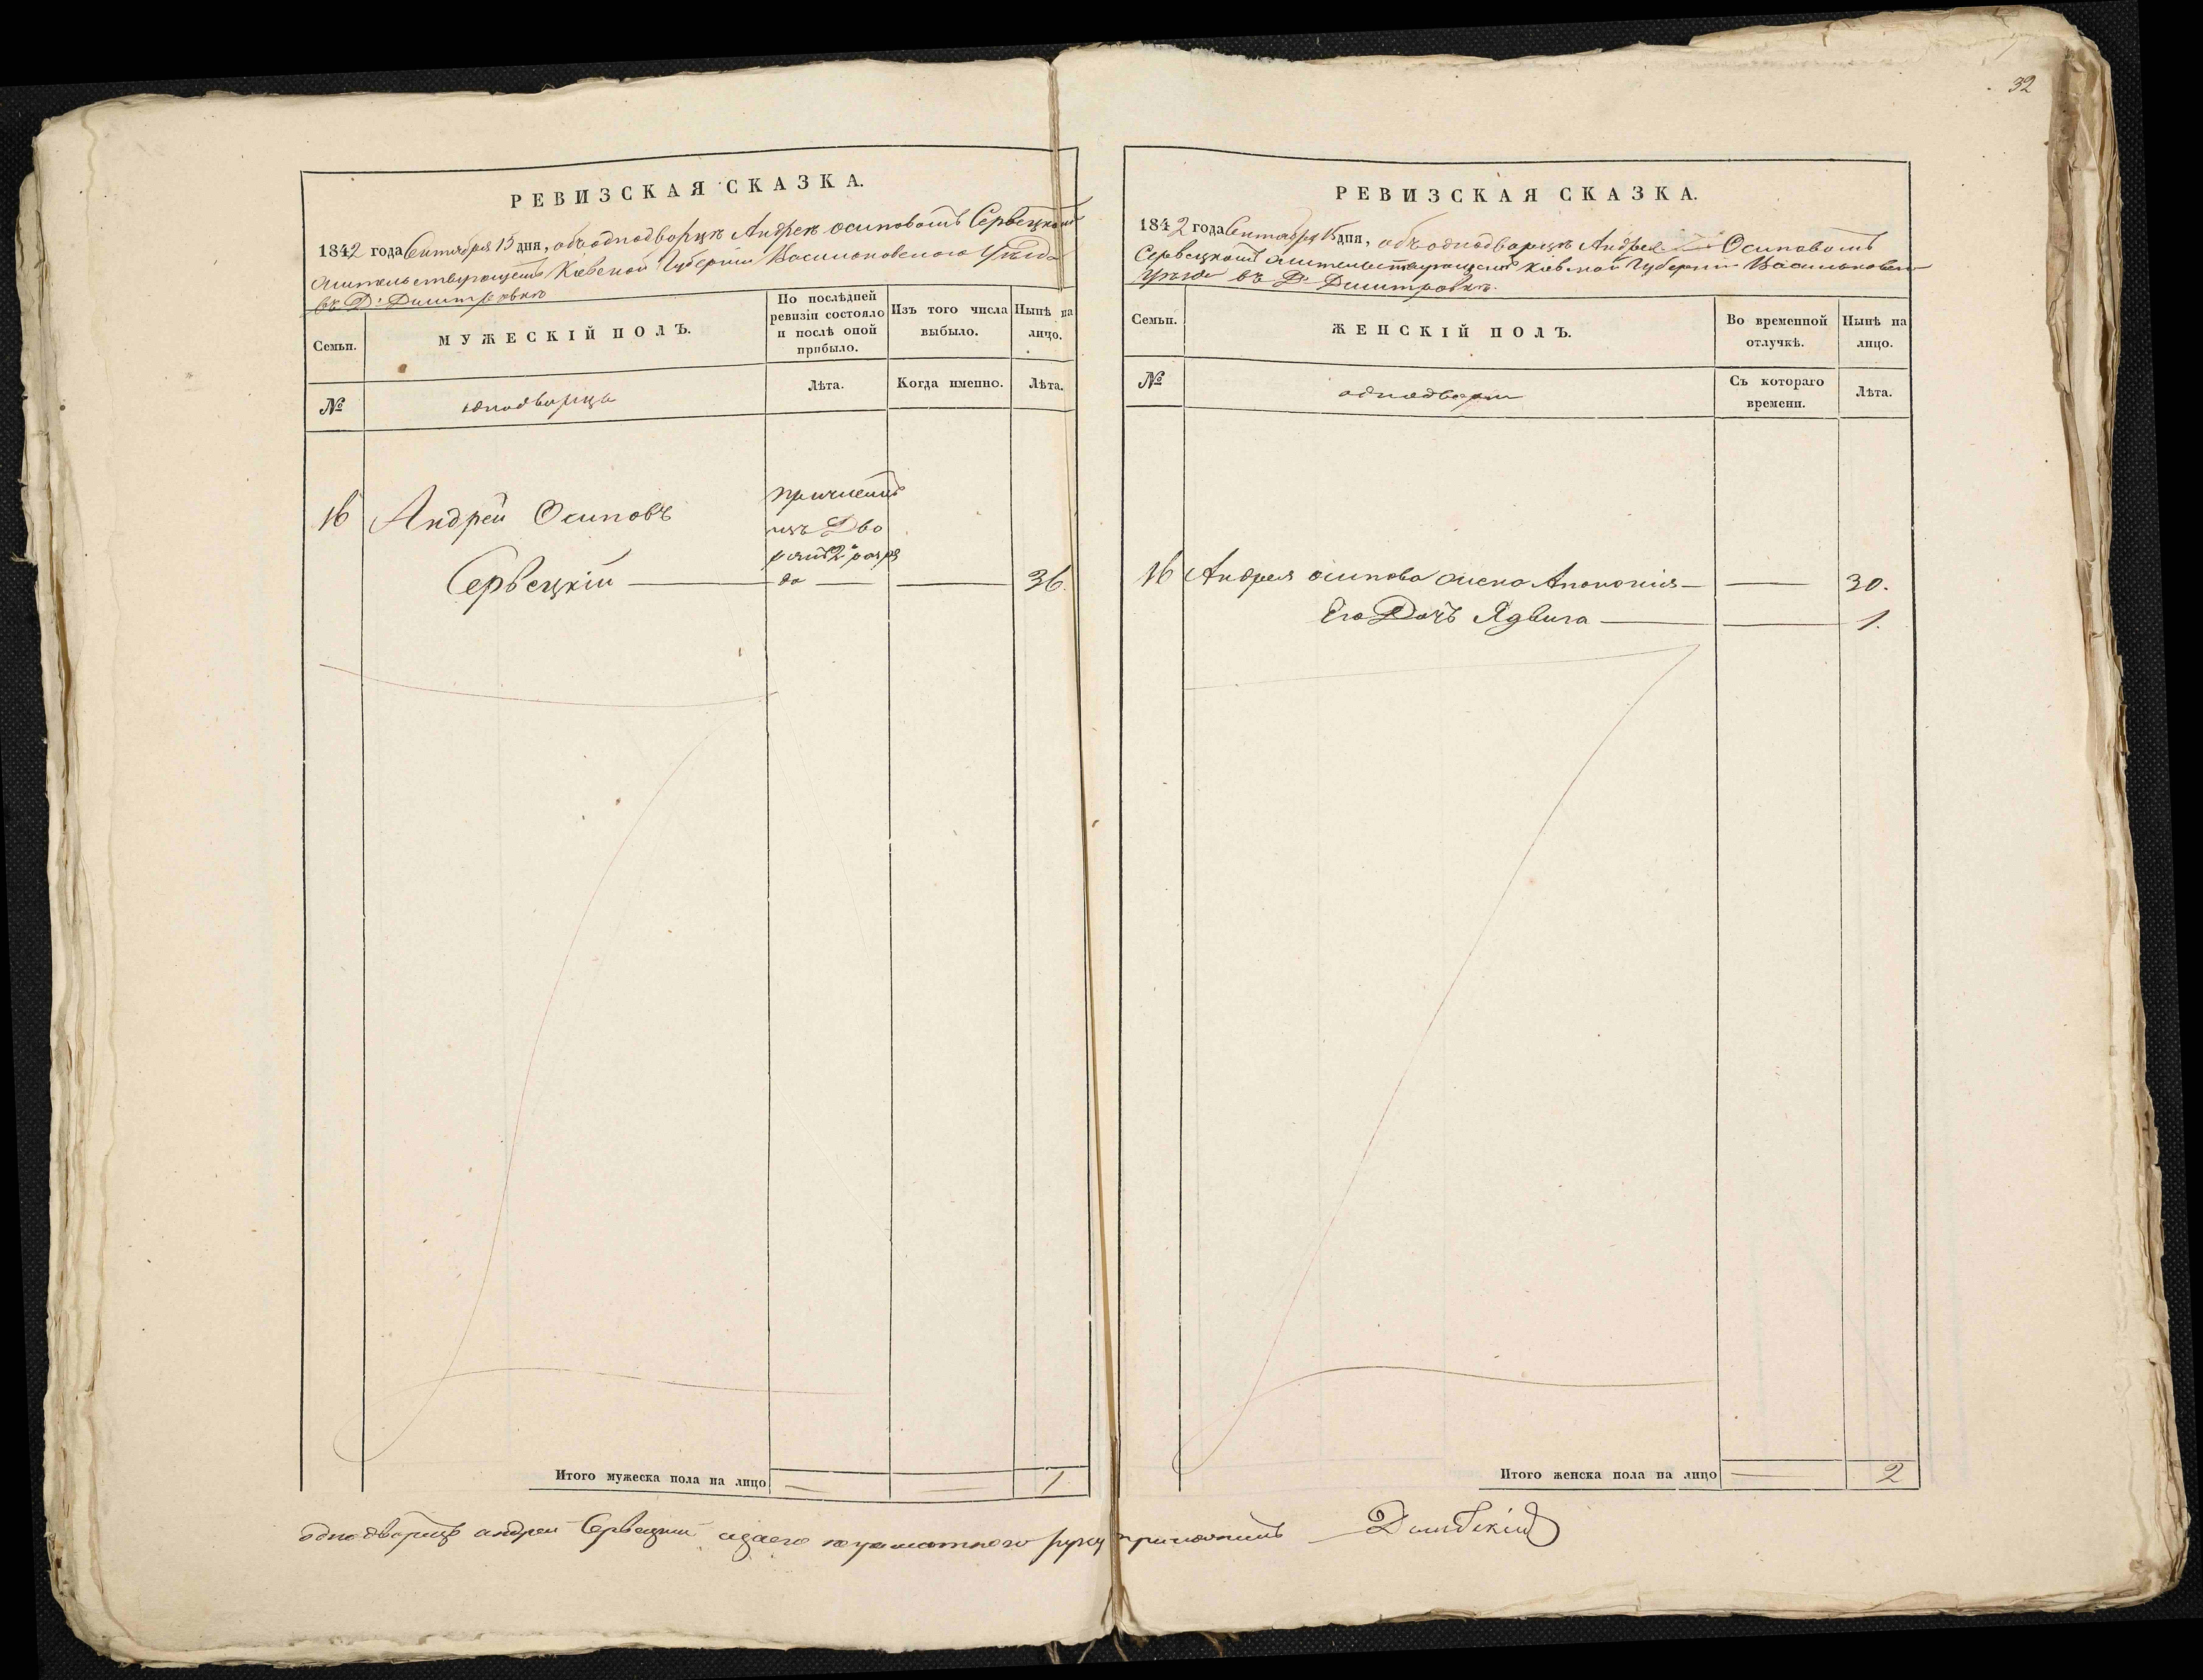 32
РЕВИЗСКАЯ СКАЗКА.
1842 года Сентября 15 дня, объ однодворцѣ Андреѣ осиповомъ Сервецкомъ
жительствующемъ Кіевской Губерніи Васильковскаго Уѣзда
въ Д. Дмитровкѣ
Семьи.
МУЖЕСКІЙ ПОЛЪ.
По послѣдней ревизіи состояло и послѣ оной прибыло.
Изъ того числа выбыло.
Нынѣ на лицо.
№
однодворцы
Лѣта.
Когда именно.
Лѣта.
16 Андрей Осиповъ
Сервецкій
причисленъ
изъ Дво
рянъ 2 разря
да
36.
Итого мужеска пола на лицо 1
РЕВИЗСКАЯ СКАЗКА.
1842 года Сентября 15 дня, объ однодворцѣ Андрее Осиповомъ
Сервецкомъ жительствующемъ Кіевской Губерніи Васильковск
Уѣзде въ Д. Дмитровкѣ.
Семьи.
ЖЕНСКІЙ ПОЛЪ.
Во временной отлучкѣ.
Нынѣ на лицо.
№
однодворки
Съ котораго времени.
Лѣта.
16 Андрея осипова жена Апономія 30.
Его Дочъ Ядвига 1.
Итого женска пола на лицо 2
однодворецъ андрей Сервецкий азаего неграмотного руку приложилъ